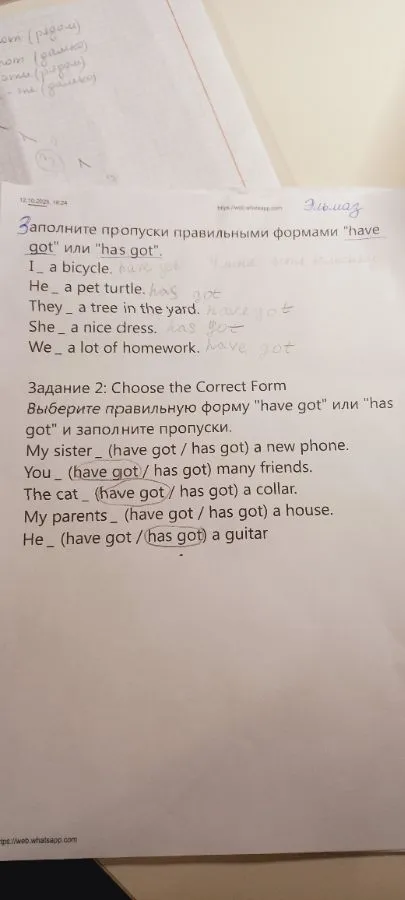 (рядом)
(далеко)
(рядом)
(далеко)
12.10.2025, 18:24 https://web.whatsapp.com Эльмаз
Заполните пропуски правильными формами "have
got" или "has got".
I _ a bicycle. have got
He _ a pet turtle. has got
They _ a tree in the yard. have got
She _ a nice dress. has got
We _ a lot of homework. have got
Задание 2: Choose the Correct Form
Выберите правильную форму "have got" или "has
got" и заполните пропуски.
My sister _ (have got / has got) a new phone.
You _ (have got / has got) many friends.
The cat _ (have got / has got) a collar.
My parents _ (have got / has got) a house.
He _ (have got / has got) a guitar
ttps://web.whatsapp.com